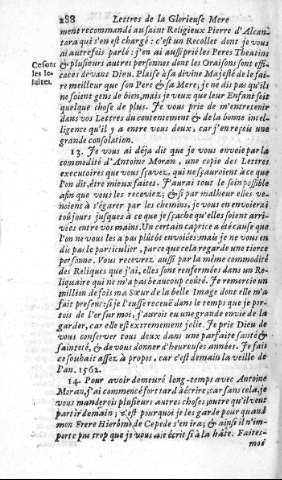 288 Lettres de la Glorieuse Mere
ment recommandé au saint Religieux Pierre d'Alcan-
tara qui s'en est chargé : c'est un Recollet dont je vous
ai autrefois parlé ; j'en ai aussi prié les Peres Theatins
& plusieurs autres personnes dont les Oraisons sont effi-
caces devant Dieu. Plaise à sa divine Majesté de le fai-
re meilleur que son Pere & sa Mere ; je ne dis pas qu'ils
ne soient gens de bien, mais je veux que leur Enfant soit
quelque chose de plus. Je vous prie de m'entretenir
dans vos Lettres du contentement & de la bonne intel-
ligence qu'il y a entre vous deux, car j'en reçois une
grande consolation.
13. Je vous ai déja dit que je vous envoie par la
commodité d'Antoine Moran, une copie des Lettres
executoires que vous sçavez, qui ne sçauroient à ce que
l'on dit, être mieux faites. J'aurai tout le soin possible
afin que vous les receviez ; & si par malheur elles ve-
noient à s'égarer par les chemins, je vous en envoierai
toûjours jusques à ce que je sçache qu'elles soient arri-
vées entre vos mains. Un certain caprice a été cause que
l'on ne vous les a pas plûtôt envoiées : mais je ne vous en
dis pas le particulier, parce que cela regarde une tierce
personne. Vous recevrez aussi par la même commodité
des Reliques que j'ai, elles sont renfermées dans un Re-
liquaire qui ne m'a pas beaucoup coûté. Je remercie un
million de fois ma Sœur de la belle Image dont elle m'a
fait present : si je l'eusse receuë dans le temps que je por-
tois de l'or sur moi, j'aurois eu une grande envie de la
garder, car elle est extremement jolie. Je prie Dieu de
vous conserver tous deux dans une parfaite santé &
sainteté, & de vous donner d'heureuses années. Je fais
ce souhait assez à propos, car c'est demain la veille de
l'an. 1562.
14. Pour avoir demeuré long-temps avec Antoine
Moran, j'ai commencé fort tard à écrire ; car sans cela, je
vous manderois plusieurs autres choses ; outre qu'il veut
partir demain ; c'est pourquoi je les garde pour quand
mon Frere Hierôme de Cepede s'en ira ; & ainsi il n'im-
porte pas trop que je vous aie écrit si à la hâte. Faites-
moi
Ce sont
les Je-
suites.